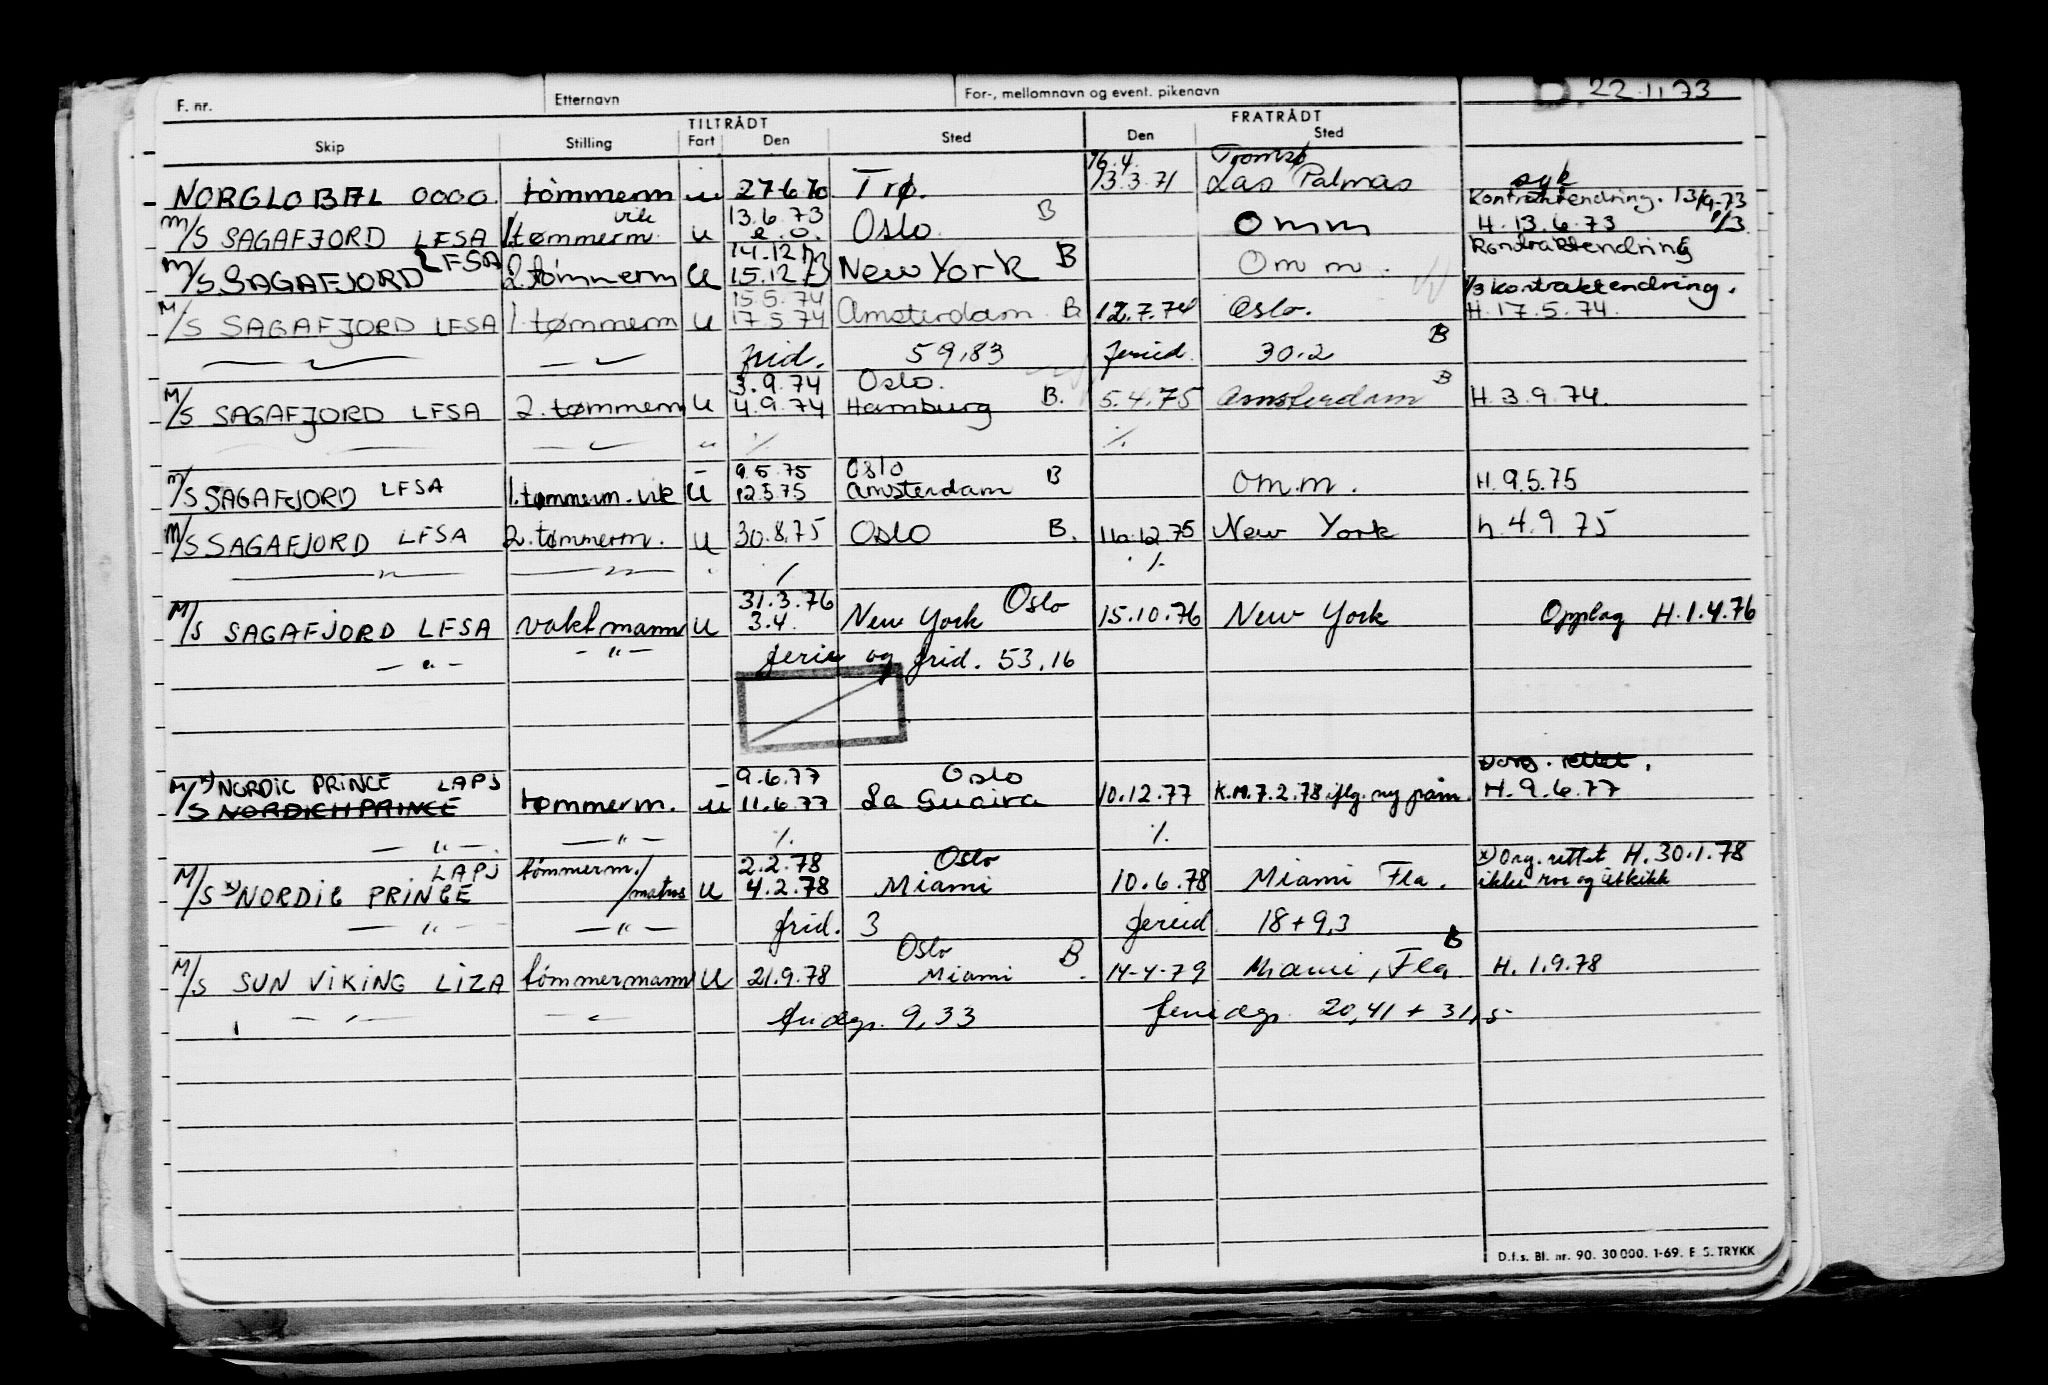 F. nr. Etternavn For-, mellomnavn og event. pikenavn 22.11.73
TILTRÅDT FRATRÅDT
Skip Stilling Fart Den Sted Den Sted
16.4. Tromsø
NORGLOBAL OOOO tømmerm u 27.6.70 Trø. 13.3.71 Las Palmas syk
vik 13.6.73 B Kontraktendring. 13/9-73
M/S SAGAFJORD LFSA 1. tømmerm. u e.o. Oslo. Omm H. 13.6.73
14.12.73 Kontraktendring
M/S SAGAFJORD LFSA 2. tømmerm u 15.12.73 New York B Omm.
15.5.74 1/3 kontraktendring.
M/S SAGAFJORD LFSA 1. tømmerm u 17.5.74 Amsterdam B 12.7.74 Oslo. H. 17.5.74.
frid. 59,83 feried. 30.2 B
3.9.74 Oslo. B
M/S SAGAFJORD LFSA 2. tømmerm u 4.9.74 Hamburg B. 5.4.75 Amsterdam H. 3.9.74.
— " — — " — " %. %.
9.5.75 Oslo
M/S SAGAFJORD LFSA 1. tømmerm. vik u 12.5.75 Amsterdam B Om.m. H. 9.5.75
M/S SAGAFJORD LFSA 2. tømmerm. u 30.8.75 Oslo B. 16.12.75 New York h. 4.9.75
— " — — " — %. %.
31.3.76 Oslo
M/S SAGAFJORD LFSA vaktmann u 3.4. New York 15.10.76 New York Opplag H. 1.4.76
— " — — " — ferie og frid. 53,16
x) NORDIC PRINCE LAPJ 9.6.77 Oslo Org. rettet.
M/S NORDICH PRINCE tømmerm. u 11.6.77 La Guaira 10.12.77 K.M. 7.2.78 iflg. ny påm. H. 9.6.77
— " — — " — %. %.
LAPJ tømmerm. 2.2.78 Oslo x) Org. rettet H. 30.1.78
M/S x) NORDIC PRINCE /matros u 4.2.78 Miami 10.6.78 Miami Fla. ikke ror og utkikk
— " — — " — frid. 3 feried 18 + 9,3
Oslo B B
M/S SUN VIKING LIZA tømmermann U 21.9.78 Miami 14-4-79 Miami, Fla H. 1.9.78
— " — — " — fridgr. 9,33 feriedgr. 20,41 + 31,5
D.f.s. Bl. nr. 90. 30 000. 1-69. E. S. TRYKK